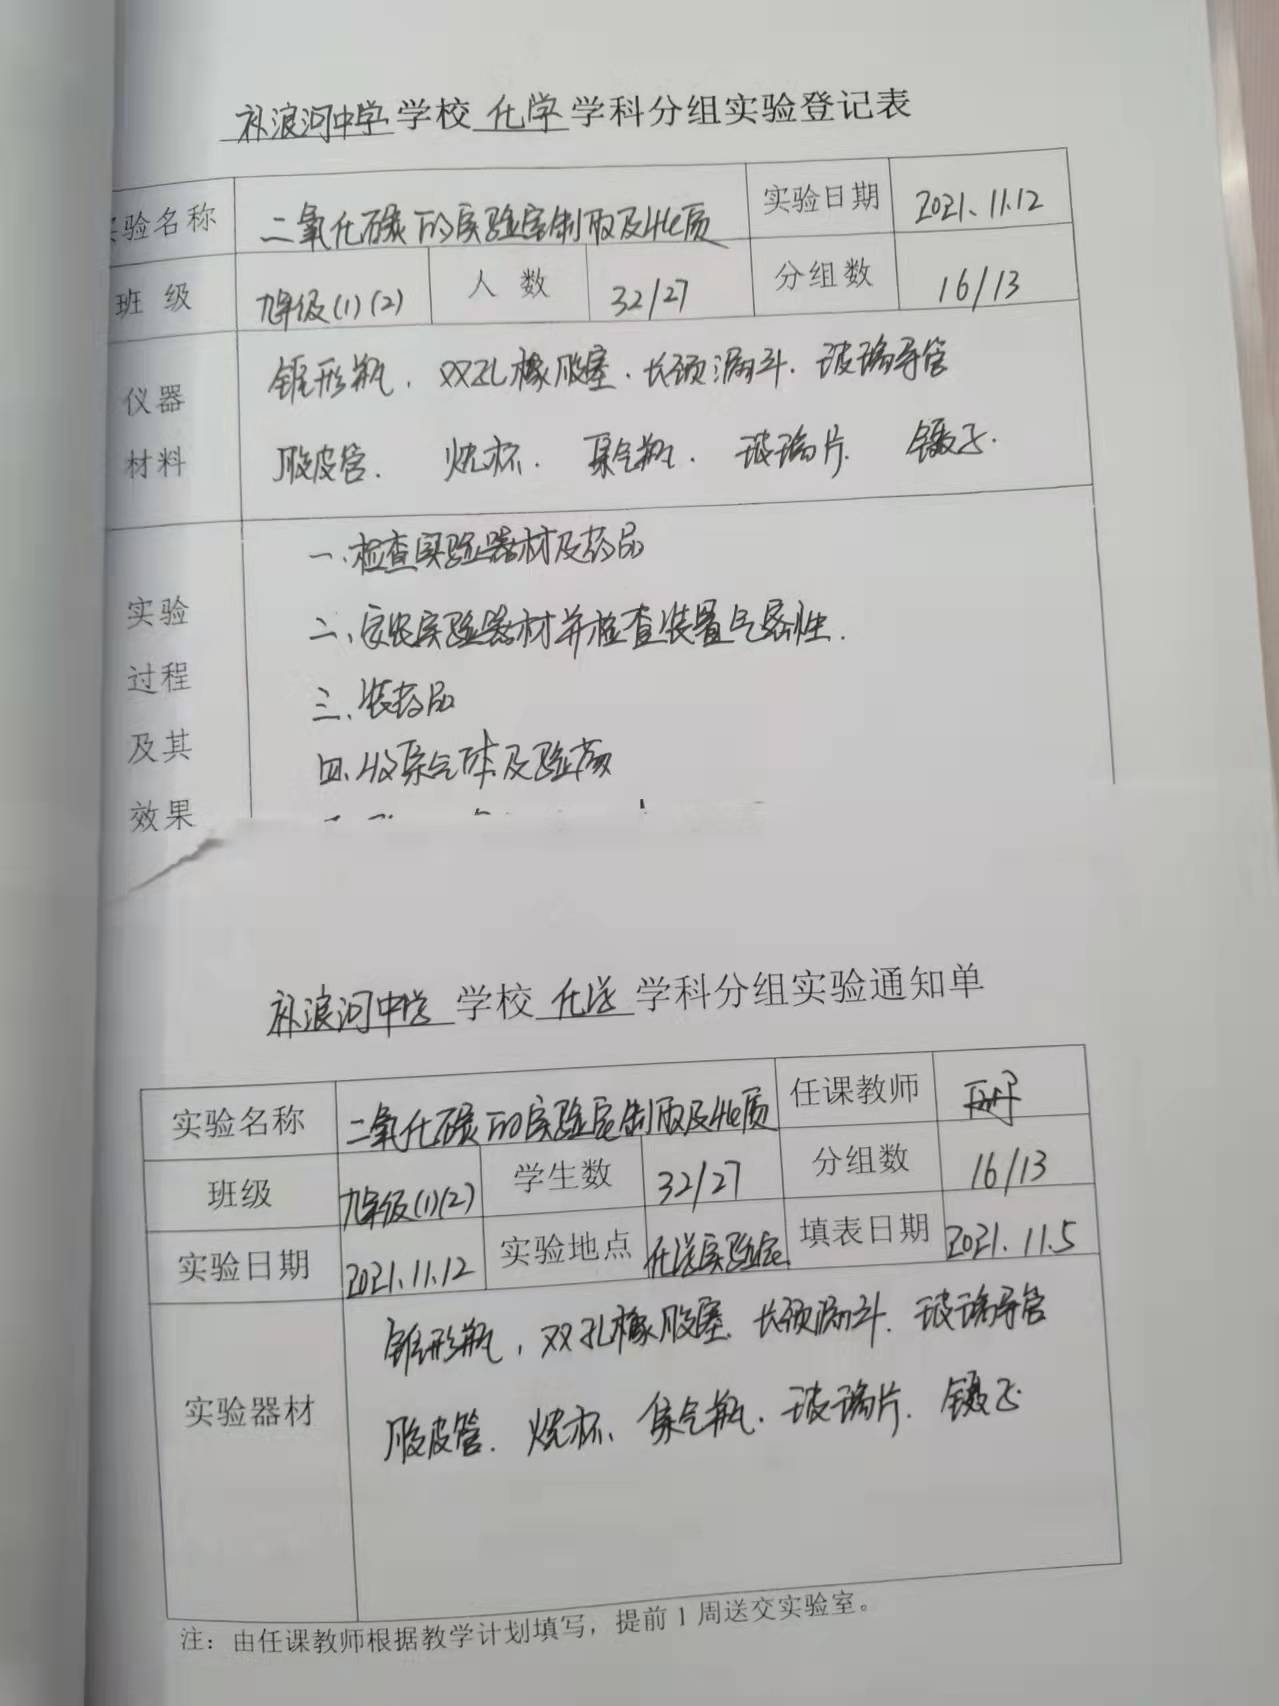 补浪河中学 学校 化学 学科分组实验登记表
实验名称 二氧化碳的实验室制取及性质 实验日期 2021.11.12
班 级 九年级(1)(2) 人 数 32/27 分组数 16/13
仪器 锥形瓶、双孔橡胶塞、长颈漏斗、玻璃导管
材料 胶皮管、烧杯、集气瓶、玻璃片、镊子.
一、检查实验器材及药品
实验 二、安装实验器材并检查装置气密性.
过程 三、装药品
及其 四、收集气体及验满
效果
补浪河中学 学校 化学 学科分组实验通知单
实验名称 二氧化碳的实验室制取及性质 任课教师
班级 九年级(1)(2) 学生数 32/27 分组数 16/13
实验日期 2021.11.12 实验地点 化学实验室 填表日期 2021.11.5
锥形瓶、双孔橡胶塞、长颈漏斗、玻璃导管
实验器材 胶皮管、烧杯、集气瓶、玻璃片、镊子
注：由任课教师根据教学计划填写，提前1周送交实验室。